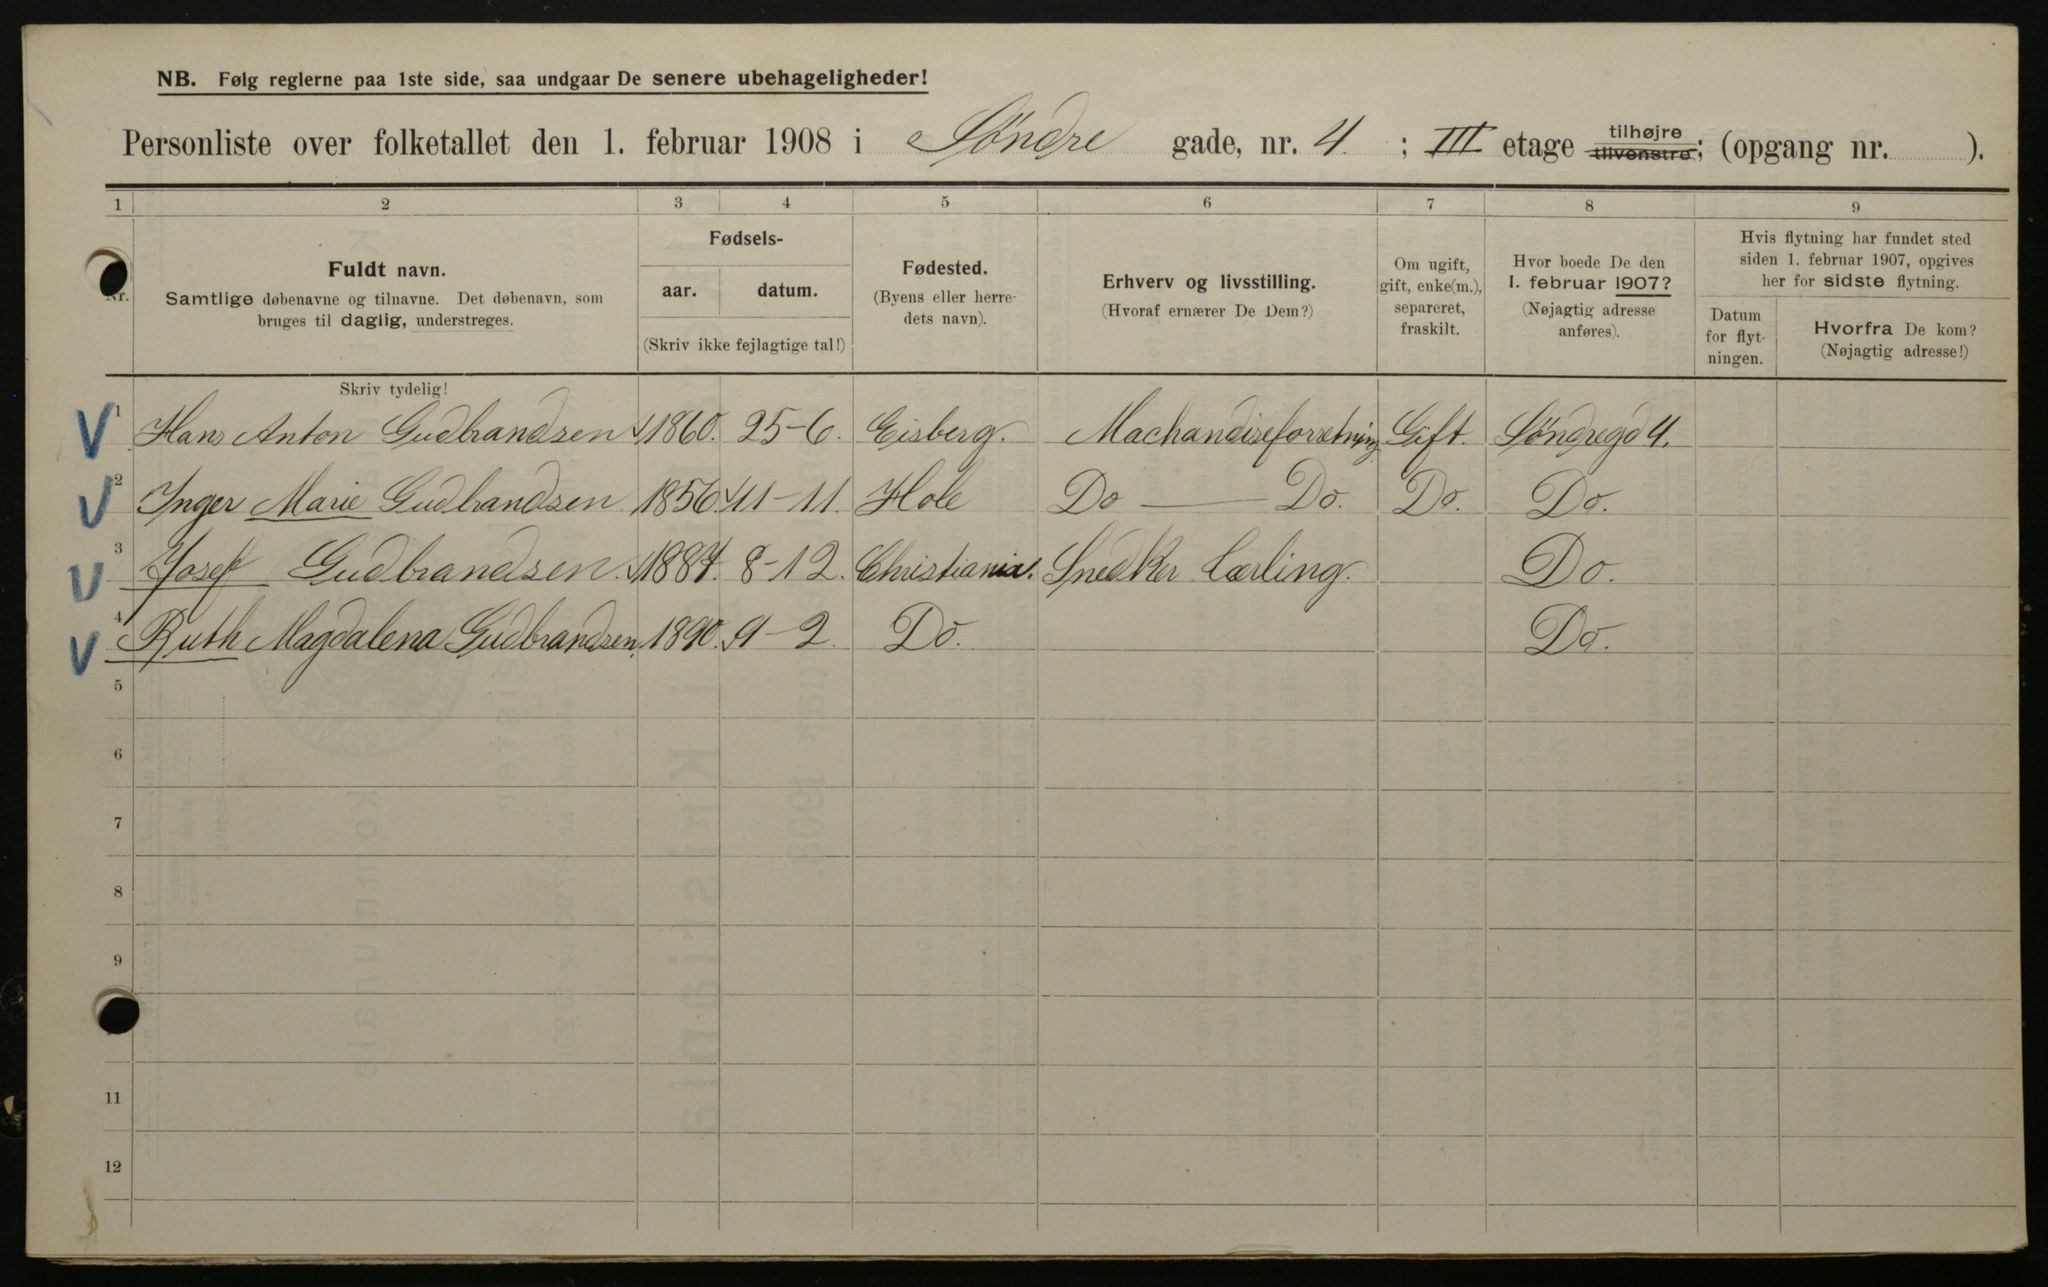 NB. Følg reglerne paa 1ste side, saa undgaar De senere ubehageligheder!
Personliste over folketallet den 1. februar 1908 i Søndre gade, nr. 4. ; III etage tilhøjre tilvenstre; (opgang nr. ).
1 2 3 4 5 6 7 8 9
Nr.
Fuldt navn.
Samtlige døbenavne og tilnavne. Det døbenavn, som
bruges til daglig, understreges.
Fødsels-
aar. datum.
(Skriv ikke fejlagtige tal!)
Fødested.
(Byens eller herre-
dets navn).
Erhverv og livsstilling.
(Hvoraf ernærer De Dem?)
Om ugift,
gift, enke(m.),
separeret,
fraskilt.
Hvor boede De den
1. februar 1907?
(Nøjagtig adresse
anføres).
Hvis flytning har fundet sted
siden 1. februar 1907, opgives
her for sidste flytning.
Datum
for flyt-
ningen.
Hvorfra De kom?
(Nøjagtig adresse!)
Skriv tydelig!
1 Hans Anton Gudbrandsen 1860. 25-6. Eisberg. Machandiseforretning Gift. Søndregd 4.
2 Inger Marie Gudbrandsen 1856. 11-11. Hole Do — Do. Do. Do.
3 Josef Gudbrandsen. 8-12. Christiania. Snedker Lærling. Do.
4 Ruth Magdalena Gudbrandsen. 1890. 9-2. Do. Do.
5
6
7
8
9
11
12